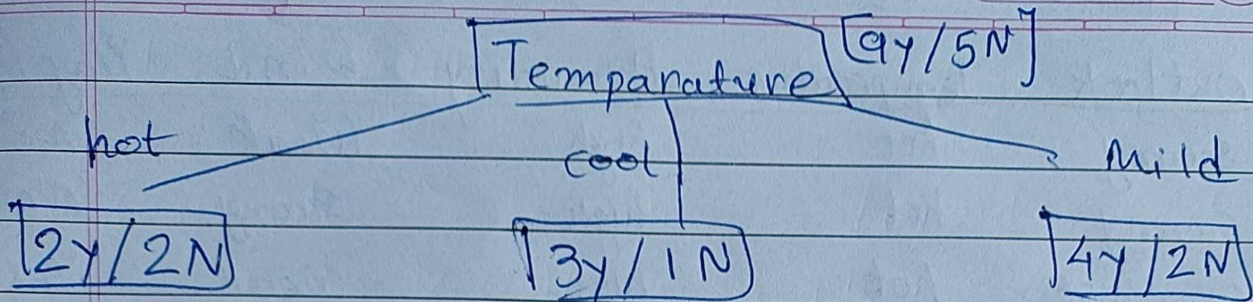 Temparature [9y/5N]
hot cool Mild
2y/2N 3y/1N 4y/2N